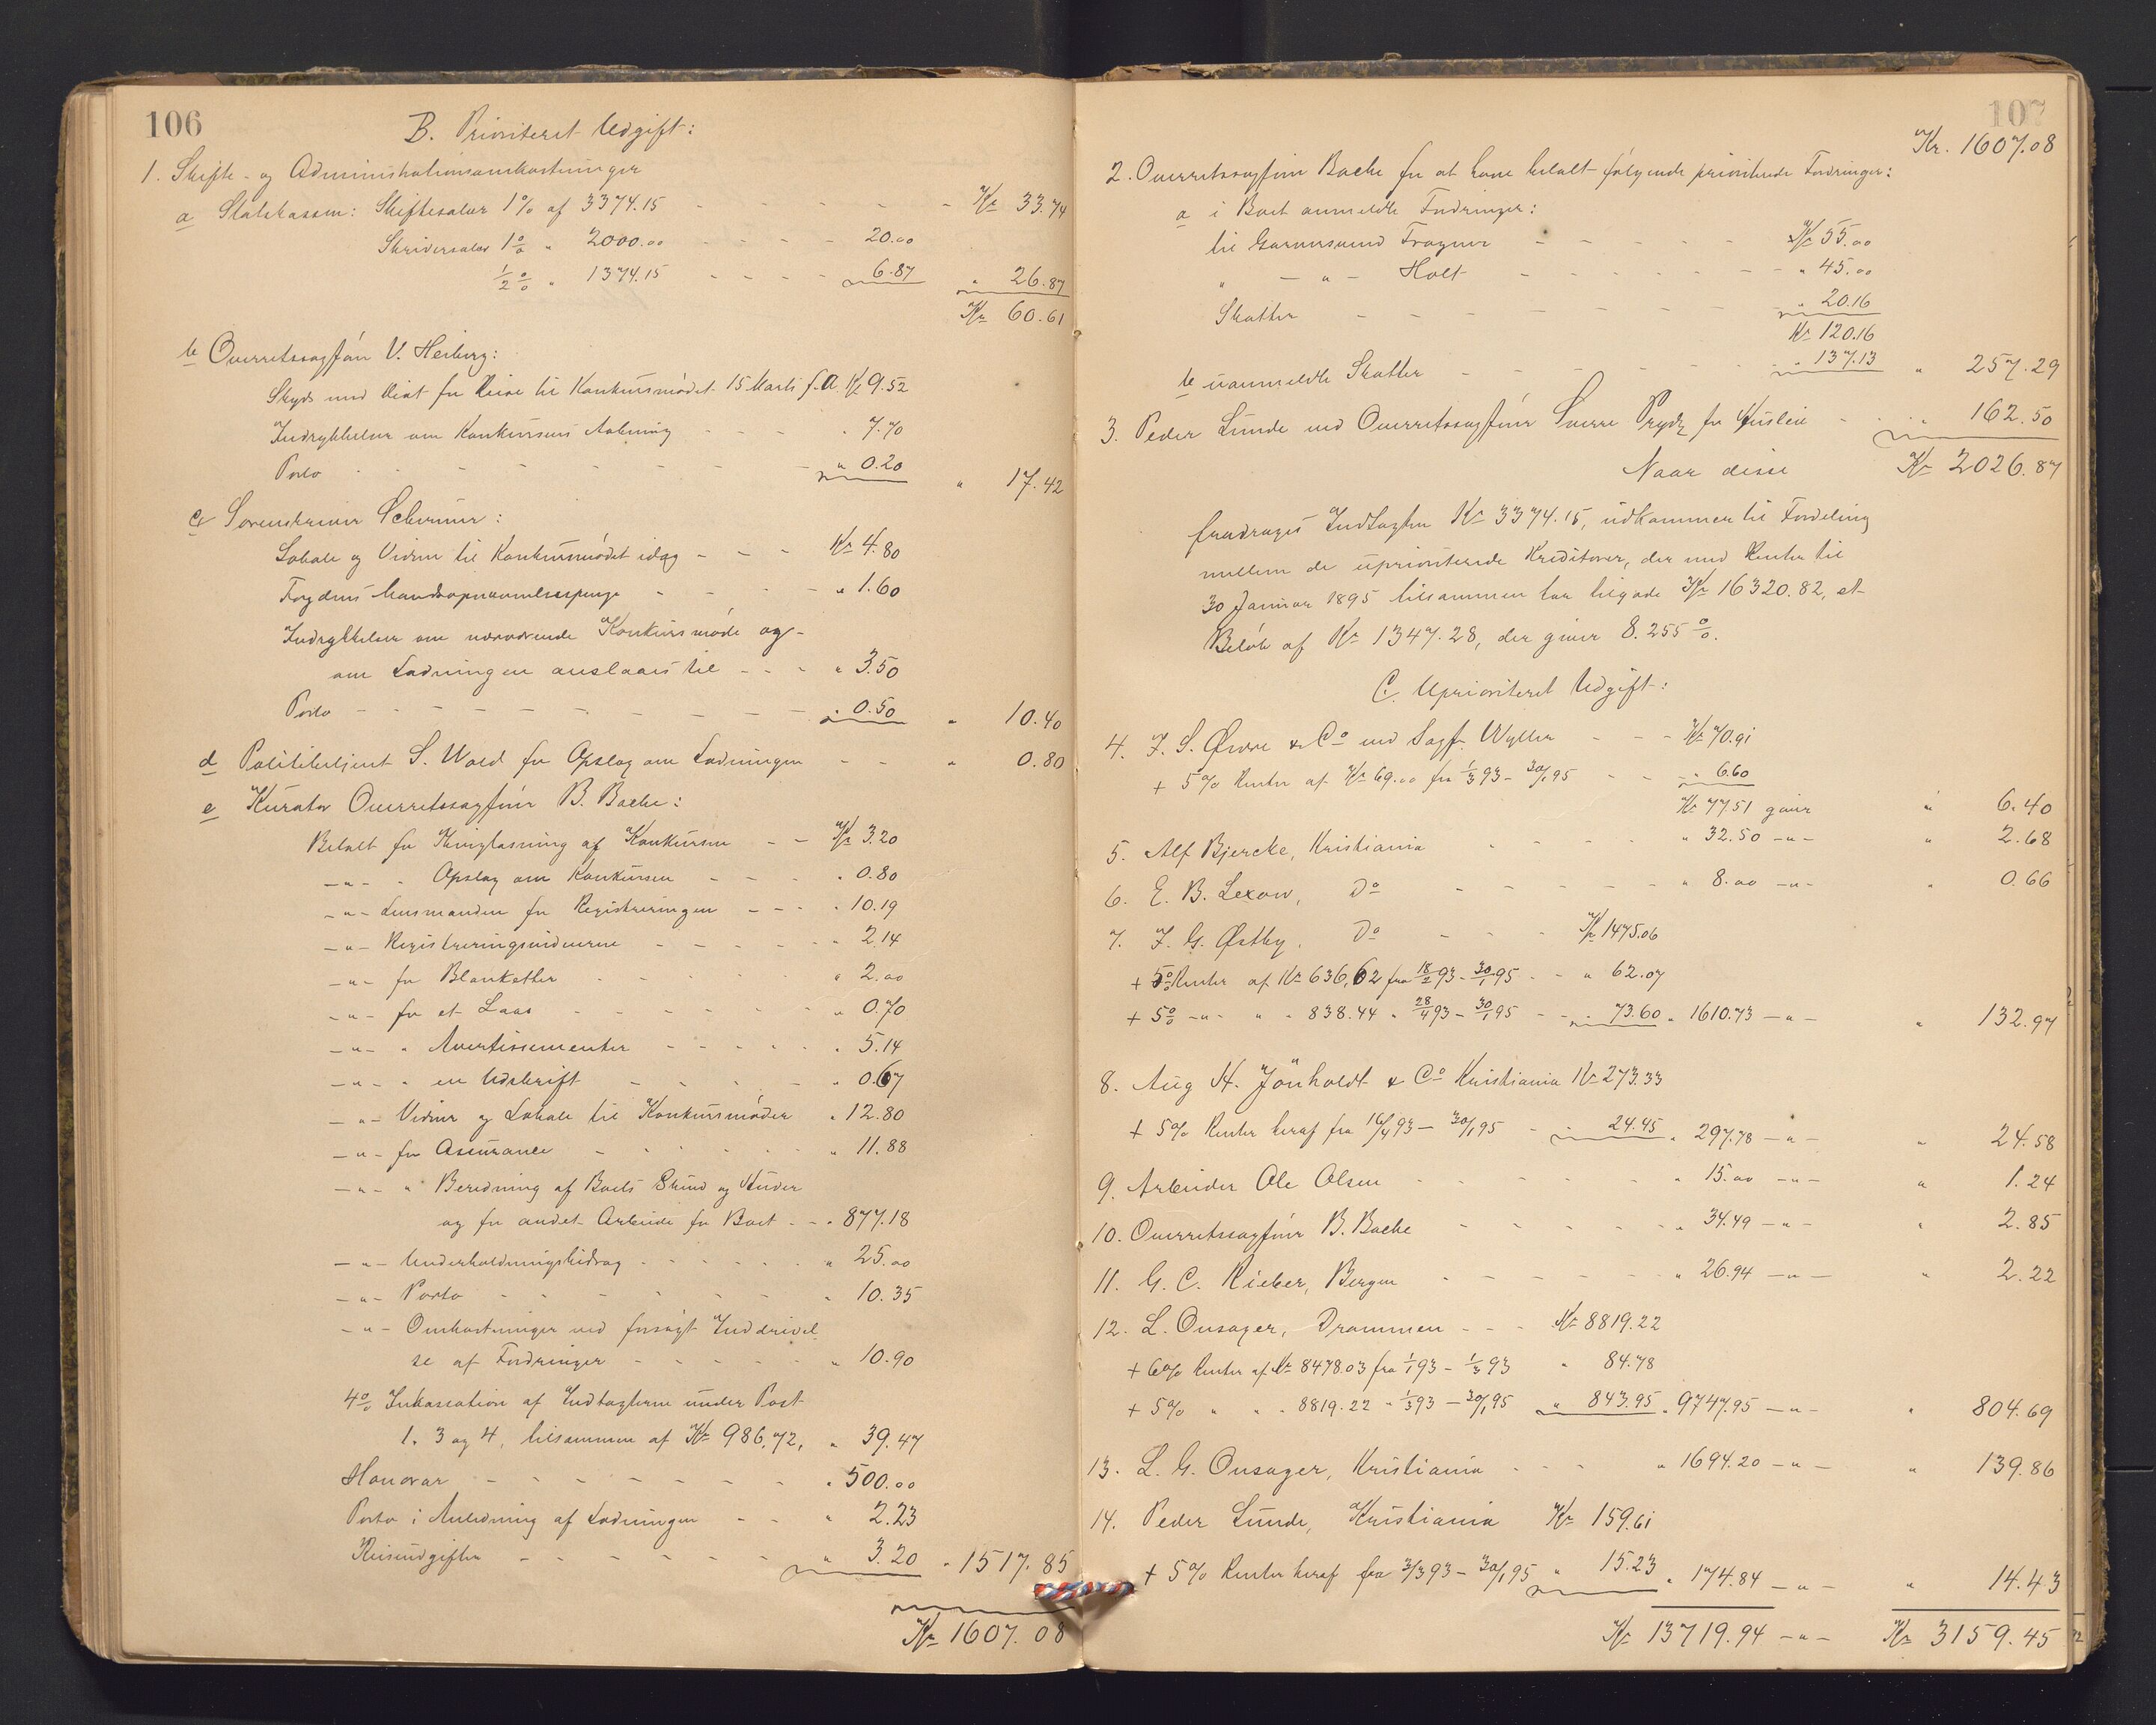 106
B. Prioriteret Udgift:
1. Skifte- og Administrationsomkostninger
a Statskassen: Skiftesalær 1% af 3374.15 - - - - - - Kr 33.74
Skriversalær 1 % " 2000.00 - - - - 20.00
1/2 % " 1374.15 - - - - 6.87 " 26.87
Kr 60.61
b Overretssagfør V. Heiberg:
Skyds med Diæt for Reise til Konkursmødet 15 Marts f. A. Kr 9.52
Indrykkelser om Konkursens Aabning - - - " 7.70
Porto - - - - - - - " 0.20 " 17.42
c Sorenskriver Scheruner:
Lokale og Vidner til Konkursmødet idag - - - Kr 4.80
Fogdens Mandsopnævnelsespenge - - - - " 1.60
Indrykkelser om nærværende Konkursmøde og
om Lodningen anslaaes til - - - " 3.50
Porto - - - - - - - - " 0.50 " 10.40
d Politibetjent S. Wold for Opslag om Lodningen - - " 0.80
e Kurator Overretssagfører B. Bache:
Betalt for Thinglæsning af Konkursen - - Kr 3.20
- " - " Opslag om Konkursen - - - - " 0.80
- " - Lensmanden for Registreringen - - - " 10.19
- " - Registreringsvidnerne - - - - - " 2.14
- " - for Blanketter - - - - - - " 2.00
- " - for et Laas - - - - - - " 0.70
- " - " Avertissementer - - - - - " 5.14
- " - " en Udskrift - - - - - " 0.67
- " - Vidner og Lokale til Konkursmøder " 12.80
- " - for Assurance - - - - - - " 11.88
- " - " Beredning af Boets Skind og Huder
og for andet Arbeide for Boet - - " 877.18
- " - Underholdningsbidrag - - - - - " 25.00
- " - Porto - - - - - - - " 10.35
- " - Omkostninger ved forsøgt Inddrivel-
se af Fordringer - - - - - " 10.90
4% Inkassation af Indtægterne under Post
1, 3 og 4, tilsammen af Kr 986,72, " 39.47
Honorar - - - - - - - " 500.00
Porto i Anledning af Lodningen - - " 2.23
Reiseudgifter - - - - - - " 3.20 " 1517.85
Kr 1607.08
107
Kr. 1607.08
2. Overretssagfører Bache for at have betalt følgende prioriterede Fordringer:
a i Boet anmeldte Fordringer:
til Garversvend Fragner - - - - - Kr 55.00
" - " - Holt - - - - - - " 45.00
Skatter - - - - - - - " 20.16
Kr 120.16
b uanmeldte Skatter - - - - - - " 137.13 " 257.29
3. Peder Lunde ved Overretssagfører Sverre Prydz for Husleie - - " 162.50
Naar disse Kr 2026.87
fradrages Indtægten Kr 3374.15, udkommer til Fordeling
mellem de uprioriterede Kreditorer, der med Renter til
30 Januar 1895 tilsammen har tilgode Kr 16320.82, et
Beløb af Kr 1347.28, der giver 8.255 %.
C. Uprioriteret Udgift:
4. J. S. Øwre & Co ved Sagf. Wyller - - - Kr 70.91
+ 5% Renter af Kr 69.00 fra 1/3 93 - 30/1 95 - - " 6.60
Kr 77.51 giver " 6.40
5. Alf Bjercke, Kristiania - - - - " 32.50 - " - " 2.68
6. E. B. Lexow, Do - - - - - " 8.00 - " - " 0.66
7. J. G. Østby, Do - - - Kr 1475.06
+ 5% Renter af Kr 636,62 fra 18/2 93 - 30/1 95 - - " 62.07
+ 5% - " - " " 838.44 " 28/4 93 - 30/1 95 - - " 73.60 " 1610.73 - " - " 132.97
8. Aug H. Jönholdt & Co Kristiania Kr 273.33
+ 5% Renter heraf fra 16/4 93 - 30/1 95 - " 24.45 " 297.78 - " - " 24.58
9. Arbeider Ole Olsen - - - - - - " 15.00 - " - " 1.24
10. Overretssagfører B. Bache - - - - - " 34.49 - " - " 2.85
11. G. C. Rieber, Bergen - - - - - " 26.94 - " - " 2.22
12. L. Onsager, Drammen - - - Kr 8819.22
+ 6% Renter af Kr 8478.03 fra 1/1 93 - 1/3 93 " 84.78
+ 5% " " " 8819.22 " 1/3 93 - 30/1 95 " 843.95 " 9747.95 - " - " 804.69
13. L. G. Onsager, Kristiania - - - " 1694.20 - " - " 139.86
14. Peder Lunde, Kristiania Kr 159.61
+ 5% Renter heraf fra 3/3 93 - 30/1 95 " 15.23 " 174.84 - " - " 14.43
Kr 13719.94 - " - Kr 3159.45